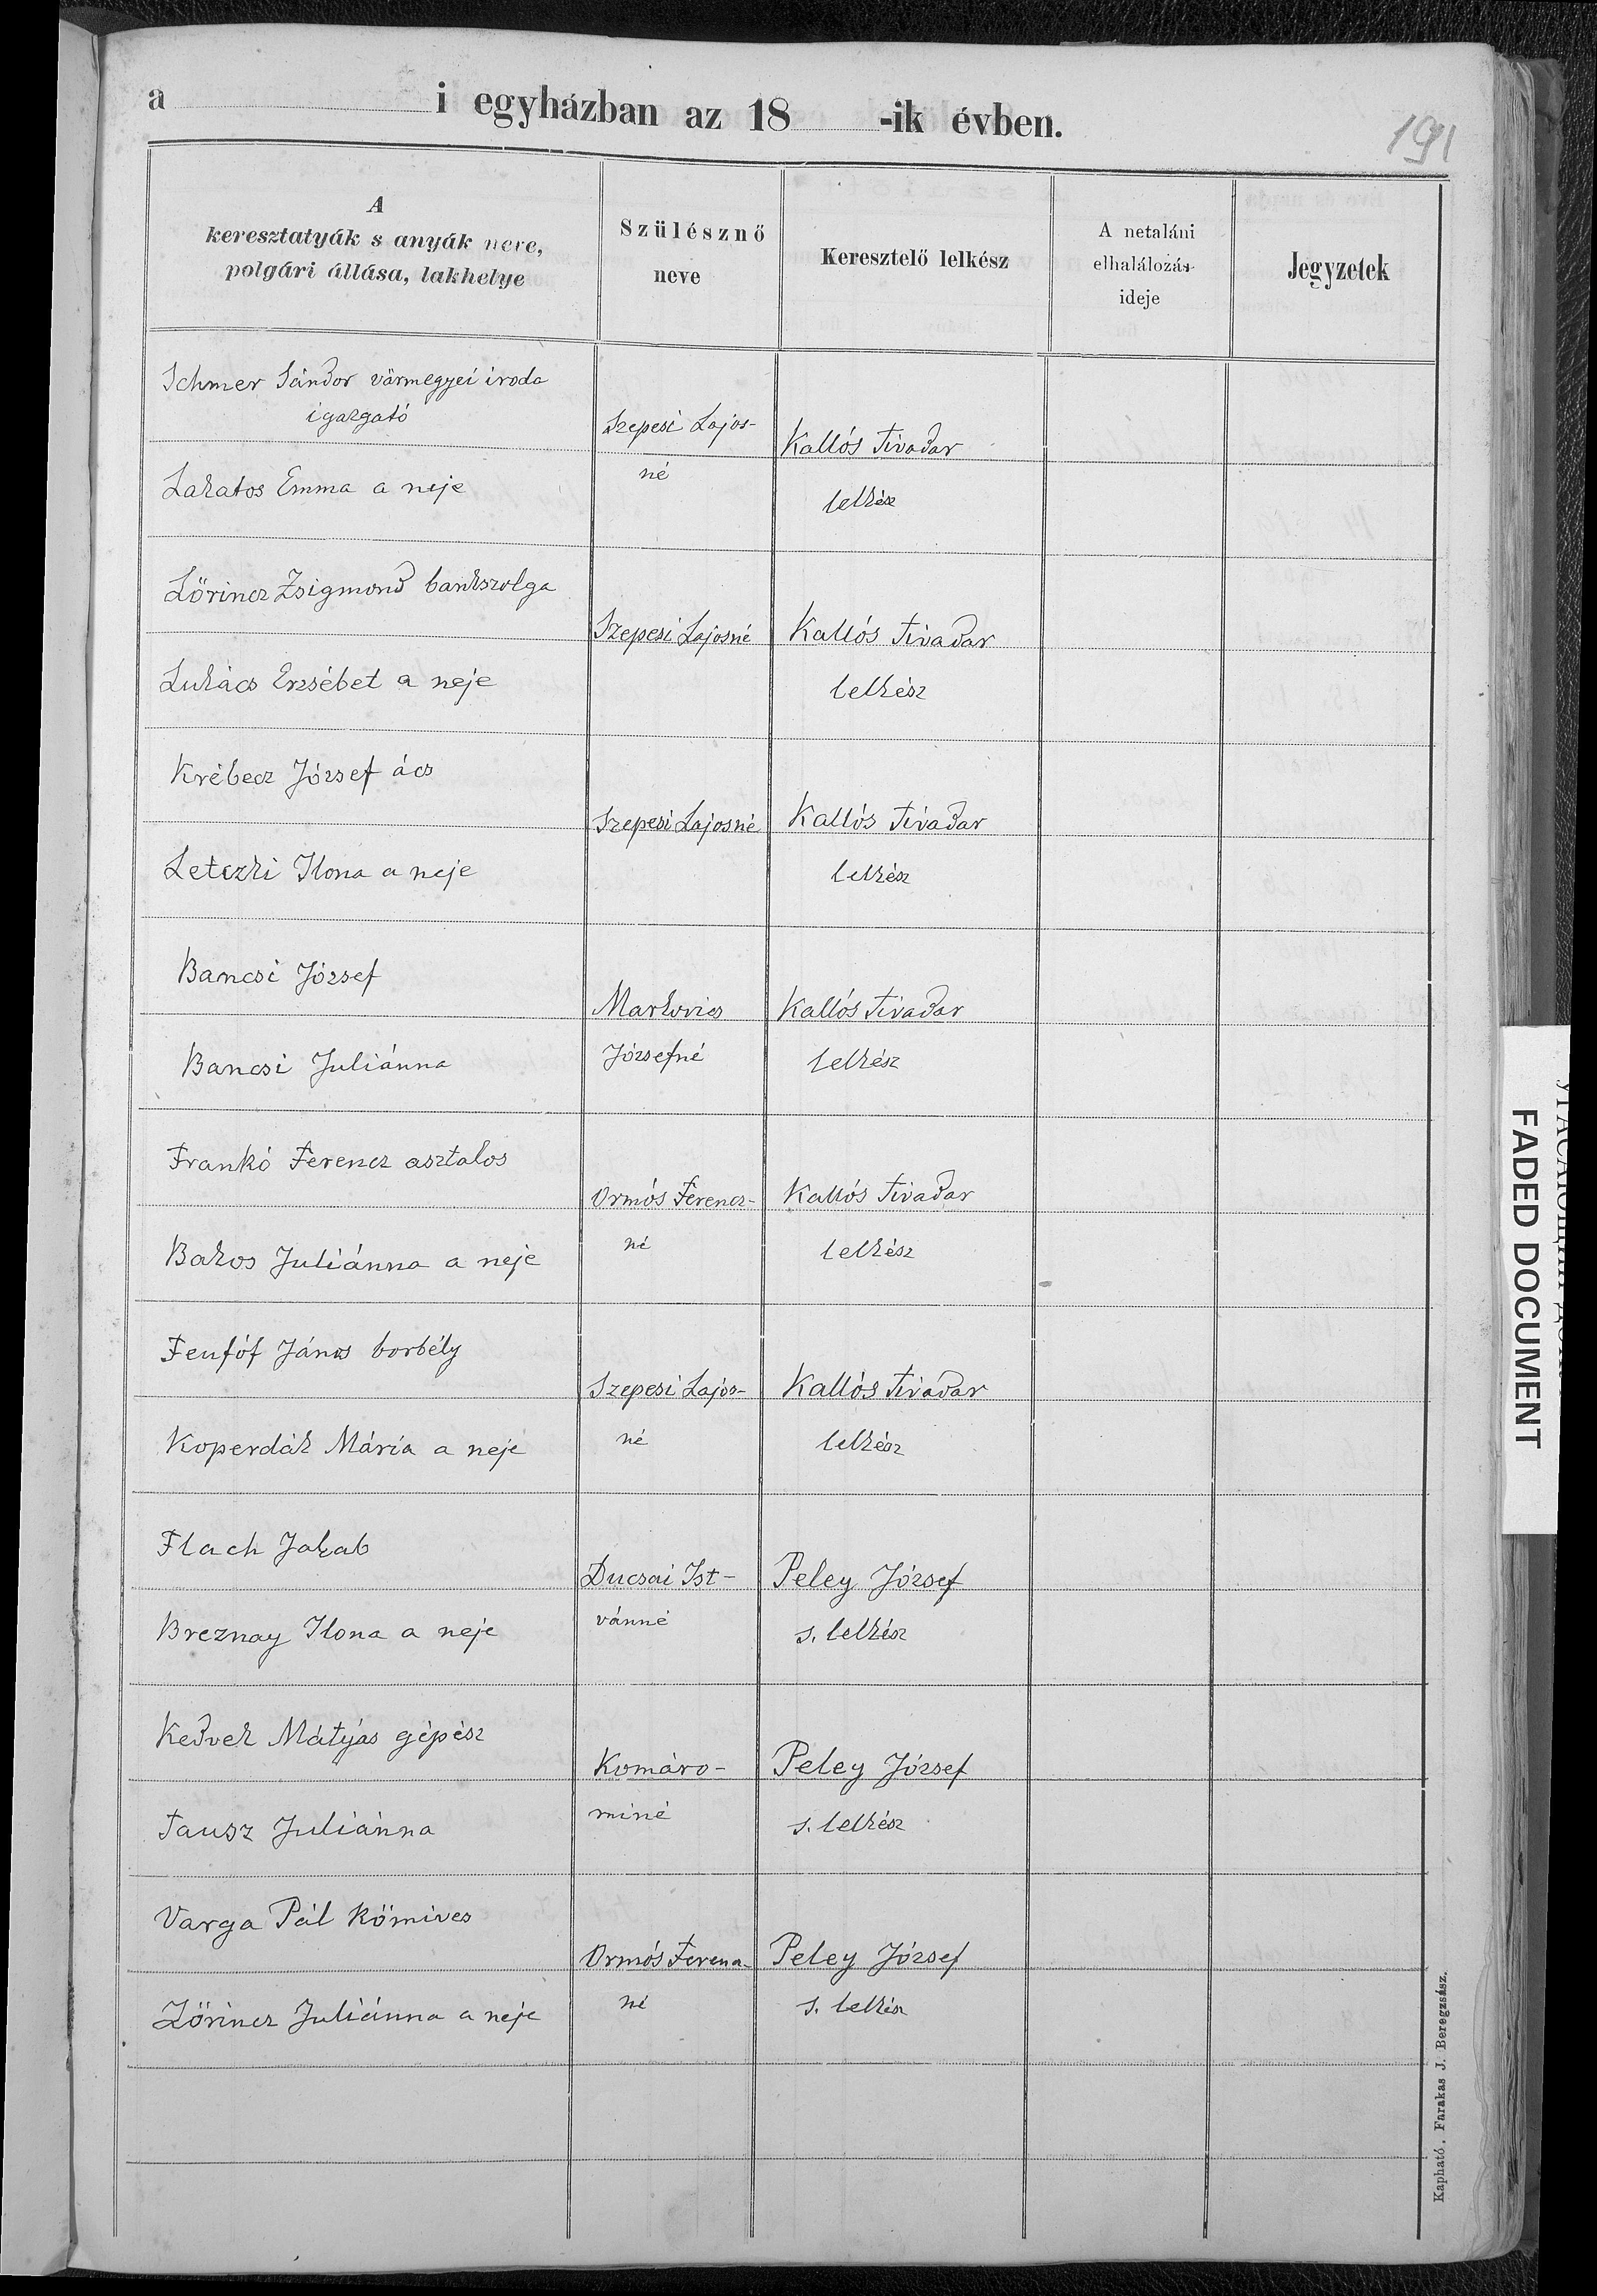 a i egyházban az 18 -ik évben.
191
A
keresztatyák s anyák neve,
polgári állása, lakhelye
Szülésznő
neve
Keresztelő lelkész
A netaláni
elhalálozás
ideje
Jegyzetek
Schmer Sándor vármegyei iroda
igazgató
Szepesi Lajos-
Kallós Tivadar
Lakatos Emma a neje
né
lelkész
Lőrincz Zsigmond bankszolga
Szepesi Lajosné
Kallós Tivadar
Lukács Erzsébet a neje
lelkész
Krébecz József ács
Szepesi Lajosné
Kallós Tivadar
Letezki Ilona a neje
lelkész
Bancsi József
Markovics
Kallós Tivadar
Bancsi Juliánna
Józsefné
lelkész
Frankó Ferencz asztalos
Ormós Ferencz-
Kallós Tivadar
Bakos Juliánna a neje
né
lelkész
Feufóf János borbély
Szepesi Lajos-
Kallós Tivadar
Koperdák Mária a neje
né
lelkész
Flach Jakab
Ducsai Ist-
Peley József
Breznay Ilona a neje
vánné
s. lelkész
Kedvek Mátyás gépész
Komáro-
Peley József
Tausz Juliánna
miné
s. lelkész
Varga Pál kőmives
Ormós Ferencz-
Peley József
Lőrincz Juliánna a neje
né
s. lelkész
Kapható. Farakas J. Beregzsász.
FADED DOCUMENT